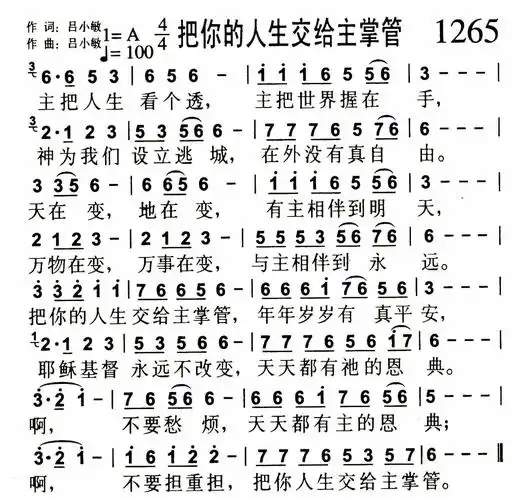 作 词: 吕小敏 1= A 4/4 把你的人生交给主掌管 1265
作 曲: 吕小敏 ♩= 100
3 6·6 5 3 | 6 5 6 - | i i i 6 5 5 6 | 3 - - - |
主把人生 看个透, 主把世界握在 手,
3 2·1 2 3 | 5 3 5 6 6 - | 7 7 7 6 5 7 6 | 6 - - - |
神为我们 设立逃 城, 在外没有真自 由。
3 3 5 6 - | 6 6 5 6 - | i i i 6 5 5 6 | 3 - - - |
天在 变, 地在 变, 有主相伴到明 天,
2 1 2 3 - | 2 1 2 3 - | 5 5 5 3 5 6 7 6 | 6 - - - |
万物在变, 万事在变, 与主相伴到 永 远。
3 3 2 i i | 7 6 6 5 6 - | 6 6 6 i 7 6 5 6 | 3 - - - |
把你的人生交给主掌管, 年年岁岁有 真平安,
1 2·1 2 3 | 5 3 5 5 6 - | 7 7 6 5 5 6 i 7 | 6 - - - |
耶稣基督 永远不改变, 天天都有祂的恩 典。
3·2 i - | 7 6 5 6 6 - | 7 7 6 5 6 5 6 | 3 - - - |
啊, 不要愁 烦, 天天都有主的恩 典;
3·2 i - | i 6 i 2 2 - | 7 7 6 5 3 5 7 | 6 - - - ‖
啊, 不要担重担, 把你人生交给主掌管。